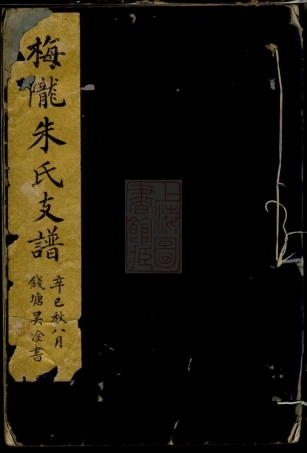 梅隴朱氏支譜
辛巳秋八月
錢塘吳淦書
上海圖書館藏